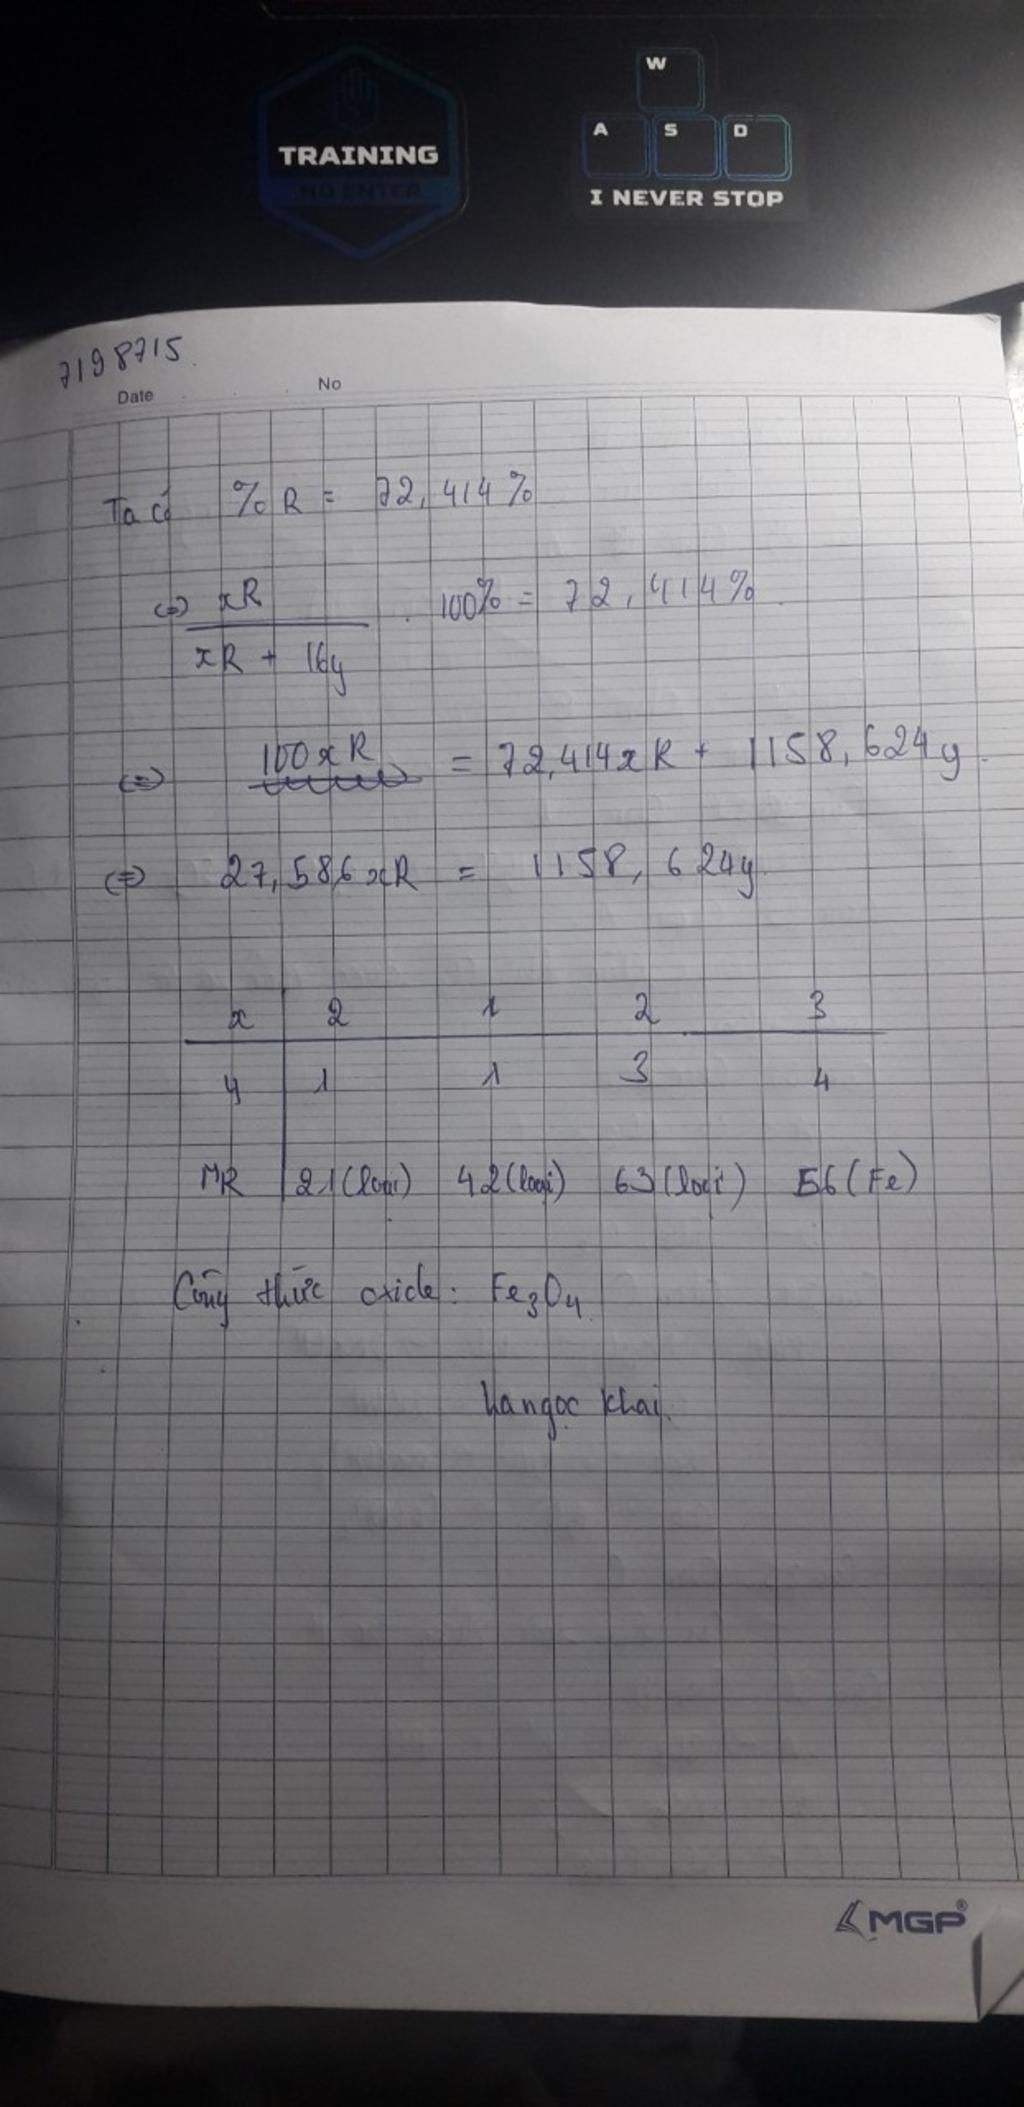 TRAINING
NO ENTER
W
A S D
I NEVER STOP
7198715
Date No
Ta có %R = 72,414%
(=) xR / xR + 16y . 100% = 72,414%
(=) 100xR = 72,414xR + 1158,624y
(=) 27,586xR = 1158,624y
x 2 1 2 3
y 1 1 3 4
MR 21(loại) 42(loại) 63(loại) 56(Fe)
Công thức oxide: Fe3O4
hangoc khai
MGP®